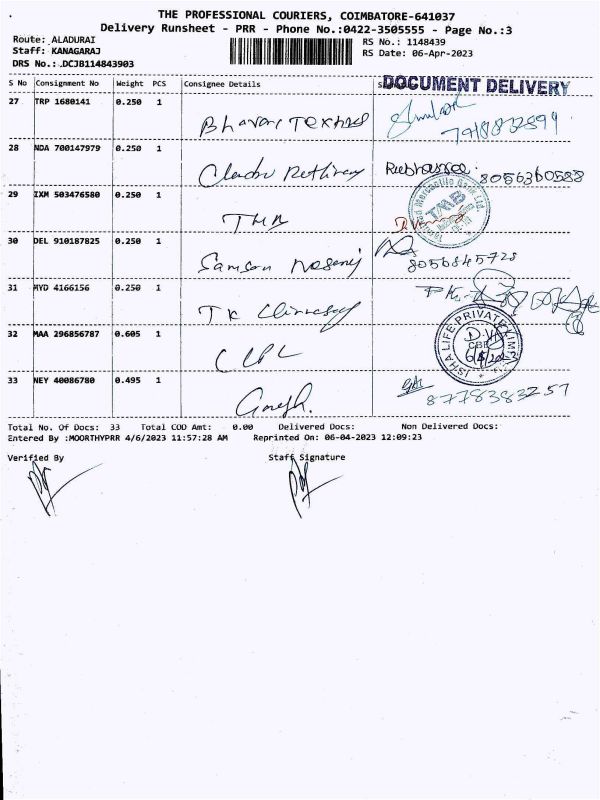 THE PROFESSIONAL COURIERS, COIMBATORE-641037
Delivery Runsheet - PRR - Phone No.:0422-3505555 - Page No.:3
Route: ALADURAI
RS No.: 1148439
Staff: KANAGARAJ
RS Date: 06-Apr-2023
DRS No.: DCJB114843903
S No Consignment No Weight PCS Consignee Details
DOCUMENT DELIVERY
27 TRP 1680141 0.250 1
28 NDA 700147979 0.250 1 8056360588
29 IXM 503476580 0.250 1 TMB TMB
30 DEL 910187825 0.250 1 Samson 8056845728
31 MYD 4166156 0.250 1 TK
32 MAA 296856787 0.605 1 ISHA LIFE PRIVATE LIMITED CBE
33 NEY 40086780 0.495 1 8778383257
Total No. Of Docs: 33 Total COD Amt: 0.00 Delivered Docs: Non Delivered Docs:
Entered By :MOORTHYPRR 4/6/2023 11:57:28 AM Reprinted On: 06-04-2023 12:09:23
Verified By Staff Signature